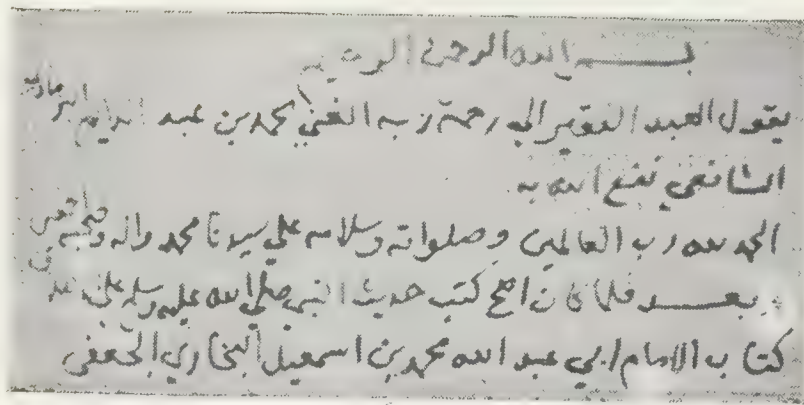 بسم الله الرحمن الرحيم
يقول العبد الفقير الى رحمة ربه الغني محمد بن عبد الدايم البرماوي
الشافعي نفع الله به
الحمد لله رب العالمين وصلواته وسلامه علي سيدنا محمد واله وصحبه اجمعين
وبعد فلما كان اصح كتب حديث النبي صلي الله عليه وسلم علي
كتاب الامام ابي عبد الله محمد بن اسمعيل البخاري الجعفي